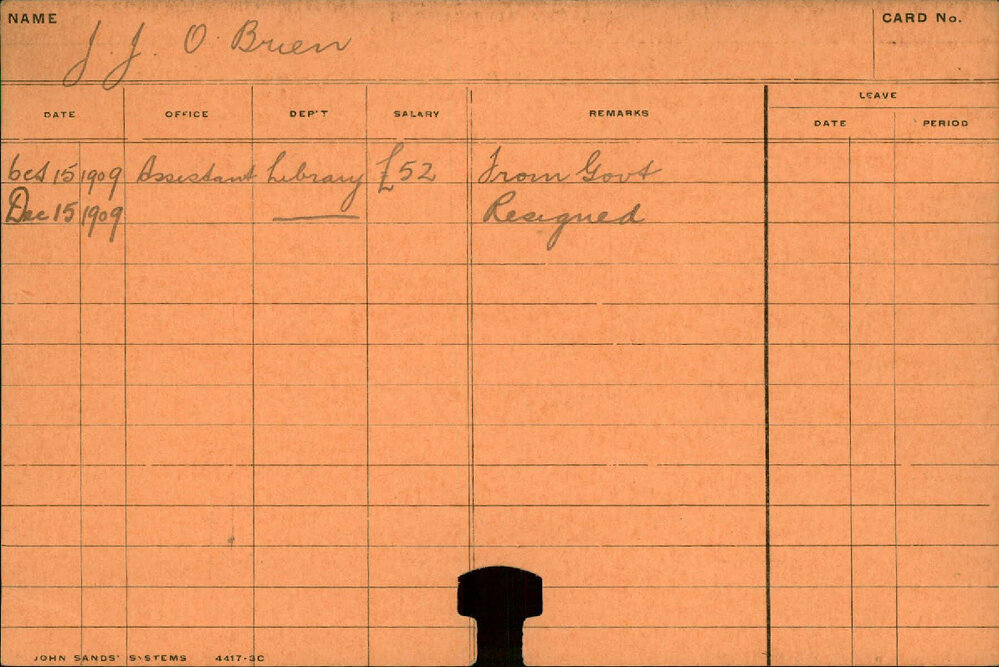 NAME J. J. O'Brien CARD No.
DATE OFFICE DEP'T SALARY REMARKS LEAVE
DATE PERIOD
Oct 15 1909 Assistant Library £52 From Govt
Dec 15 1909 Resigned
JOHN SANDS' SYSTEMS 4417-3C